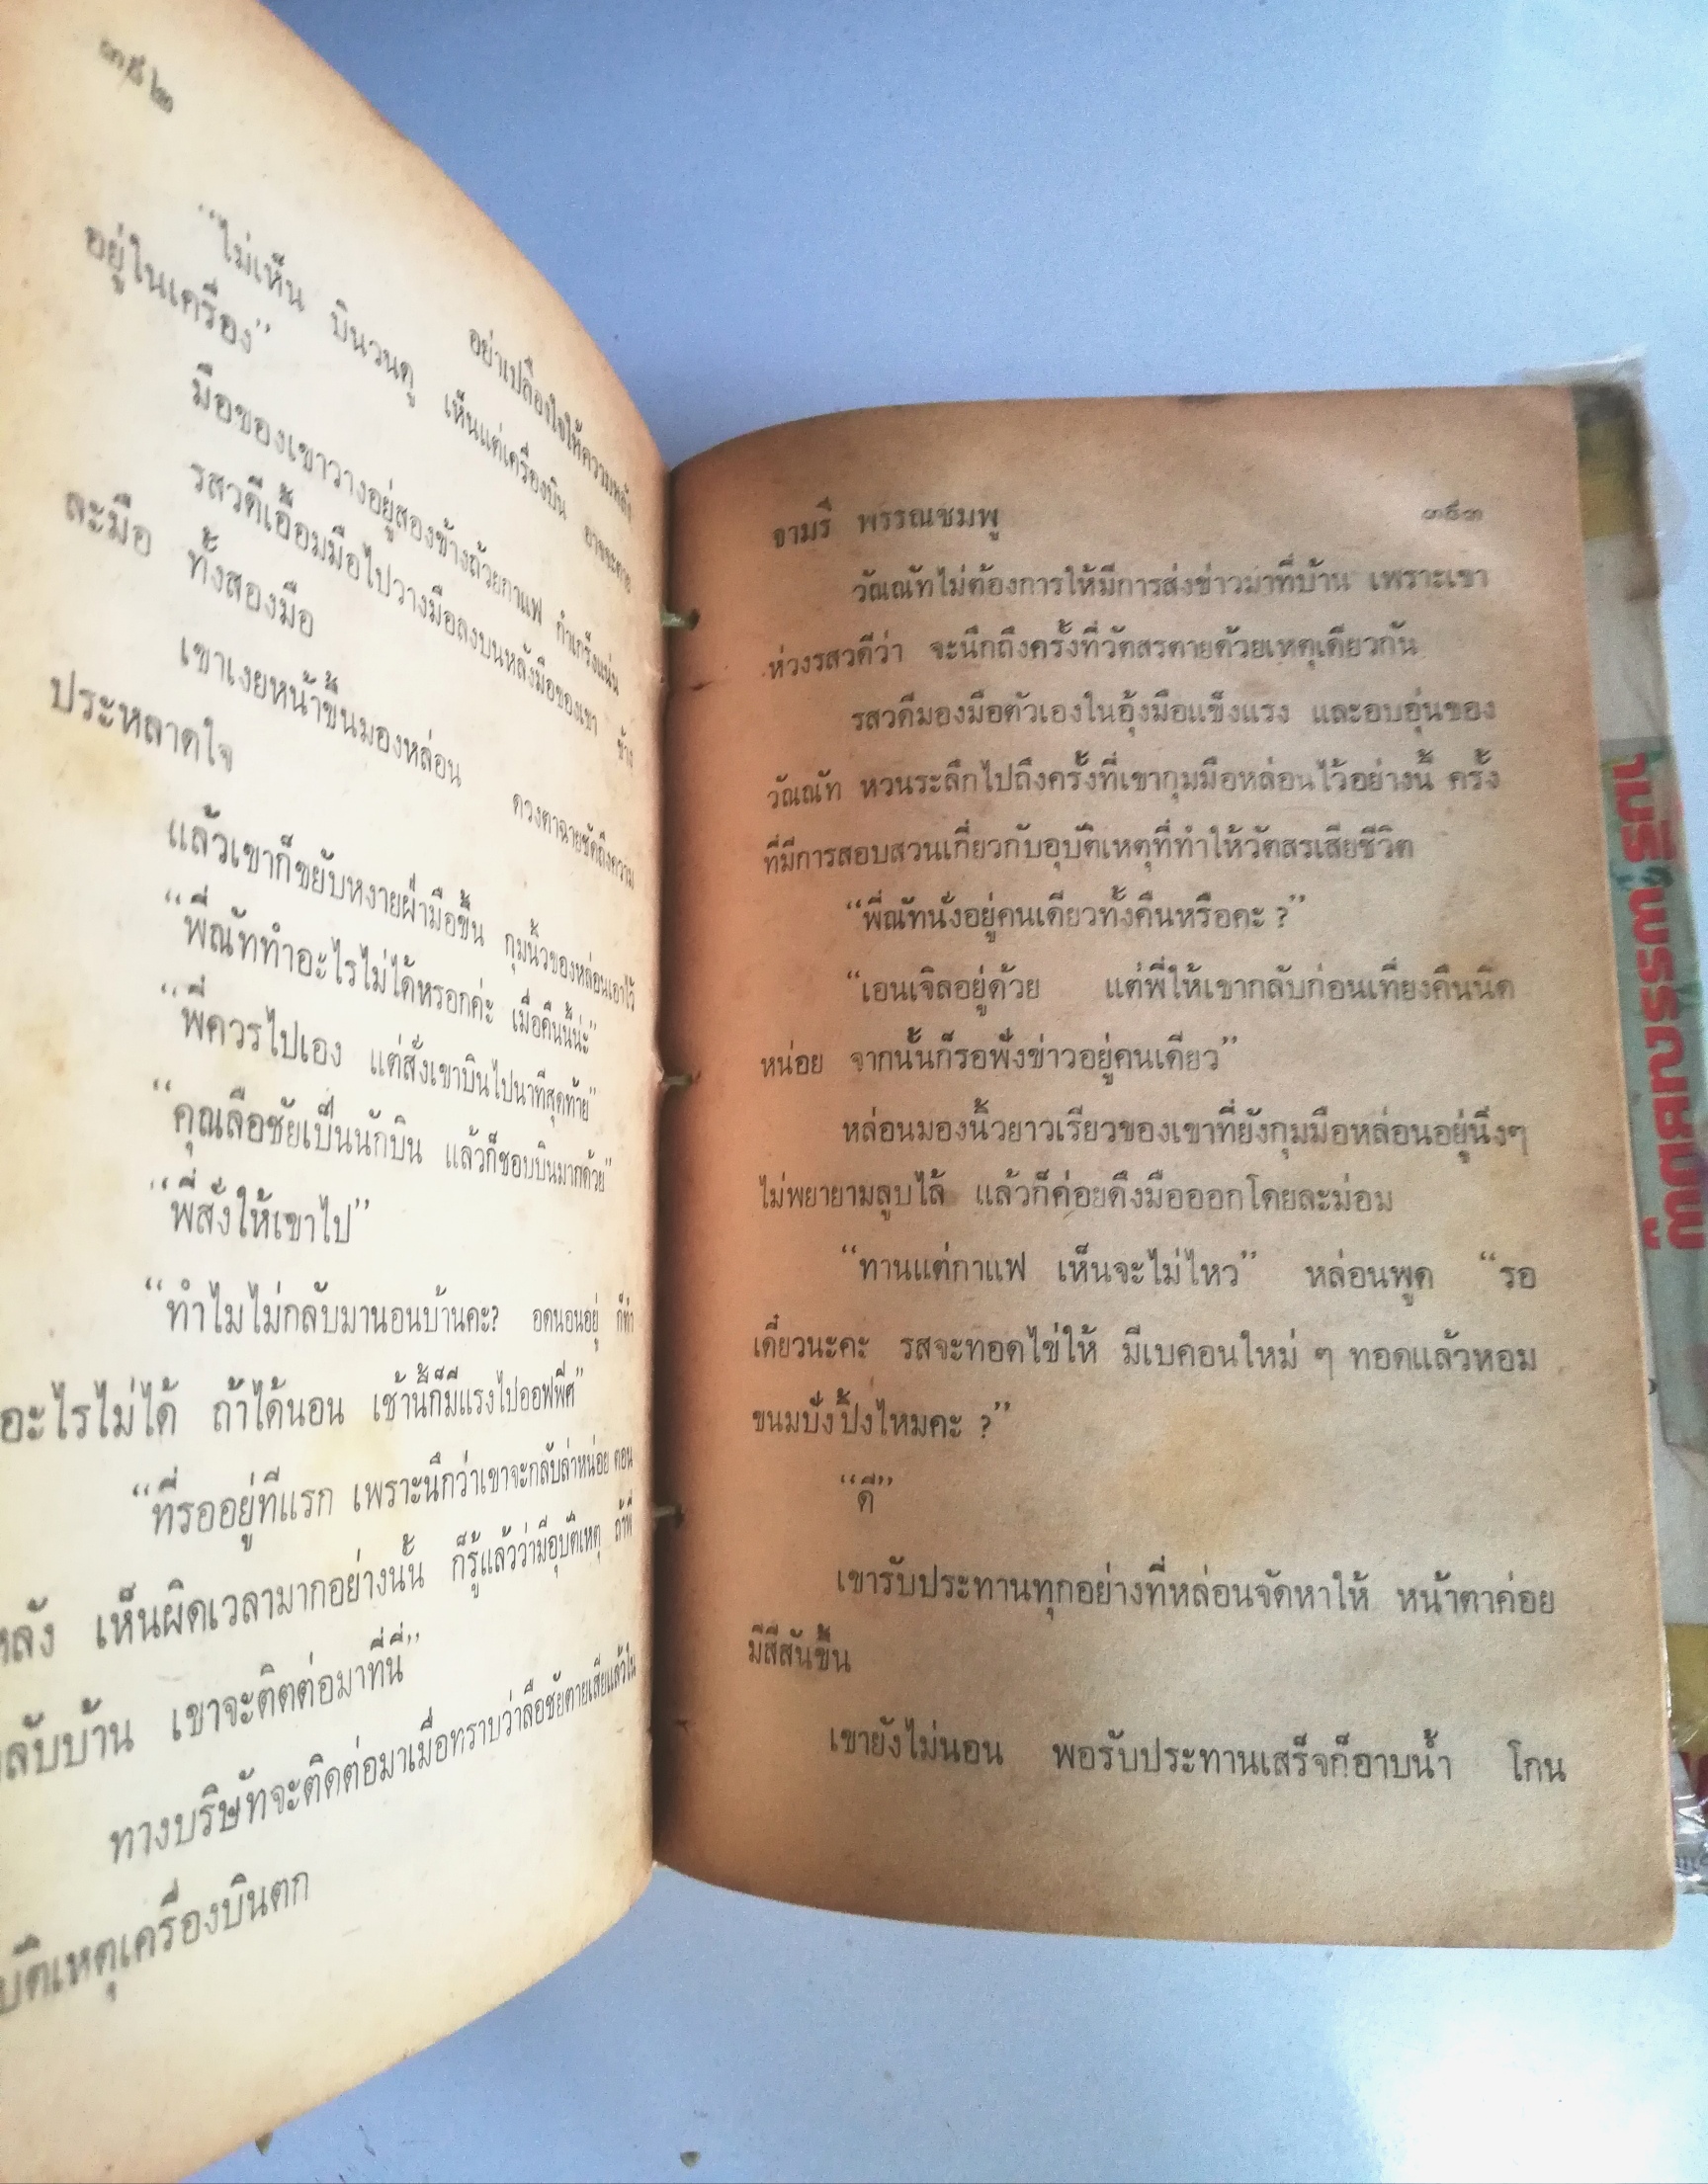 ๓๕๒
อย่าเปลื้องใจให้ความหลัง
“ไม่เห็น บินวนดู เห็นแต่เครื่องบิน อาจจะตาย
อยู่ในเครื่อง”
มือของเขาวางอยู่สองข้างถ้วยกาแฟ กำเกร็งแน่น
รสวดีเอื้อมมือไปวางมือลงบนหลังมือของเขา ข้าง
ละมือ ทั้งสองมือ
เขาเงยหน้าขึ้นมองหล่อน ดวงตาฉายชัดถึงความ
ประหลาดใจ
แล้วเขาก็ขยับหงายฝ่ามือขึ้น กุมนิ้วของหล่อนเอาไว้
“พี่ณัททำอะไรไม่ได้หรอกค่ะ เมื่อคืนนี้น่ะ”
“พี่ควรไปเอง แต่สั่งเขาบินไปนาทีสุดท้าย”
“คุณลือชัยเป็นนักบิน แล้วก็ชอบบินมากด้วย”
“พี่สั่งให้เขาไป”
“ทำไมไม่กลับมานอนบ้านคะ? อดนอนอยู่ ก็ทำ
อะไรไม่ได้ ถ้าได้นอน เช้านี้ก็มีแรงไปออฟฟิศ”
“ที่รออยู่ทีแรก เพราะนึกว่าเขาจะกลับล่าหน่อย ตอน
หลัง เห็นผิดเวลามากอย่างนั้น ก็รู้แล้วว่ามีอุบัติเหตุ ถ้าพี่
กลับบ้าน เขาจะติดต่อมาที่นี่”
ทางบริษัทจะติดต่อมาเมื่อทราบว่าลือชัยตายเสียแล้วใน
อุบัติเหตุเครื่องบินตก
จามรี พรรณชมพู ๓๕๓
วัณณัทไม่ต้องการให้มีการส่งข่าวมาที่บ้าน เพราะเขา
ห่วงรสวดีว่า จะนึกถึงครั้งที่วัตสรตายด้วยเหตุเดียวกัน
รสวดีมองมือตัวเองในอุ้งมือแข็งแรง และอบอุ่นของ
วัณณัท หวนระลึกไปถึงครั้งที่เขากุมมือหล่อนไว้อย่างนี้ ครั้ง
ที่มีการสอบสวนเกี่ยวกับอุบัติเหตุที่ทำให้วัตสรเสียชีวิต
“พี่ณัทนั่งอยู่คนเดียวทั้งคืนหรือคะ ?”
“เอนเจิลอยู่ด้วย แต่พี่ให้เขากลับก่อนเที่ยงคืนนิด
หน่อย จากนั้นก็รอฟังข่าวอยู่คนเดียว”
หล่อนมองนิ้วยาวเรียวของเขาที่ยังกุมมือหล่อนอยู่นิ่งๆ
ไม่พยายามลูบไล้ แล้วก็ค่อยดึงมือออกโดยละม่อม
“ทานแต่กาแฟ เห็นจะไม่ไหว” หล่อนพูด “รอ
เดี๋ยวนะคะ รสจะทอดไข่ให้ มีเบคอนใหม่ ๆ ทอดแล้วหอม
ขนมปังปิ้งไหมคะ ?”
“ดี”
เขารับประทานทุกอย่างที่หล่อนจัดหาให้ หน้าตาค่อย
มีสีสันขึ้น
เขายังไม่นอน พอรับประทานเสร็จก็อาบน้ำ โกน